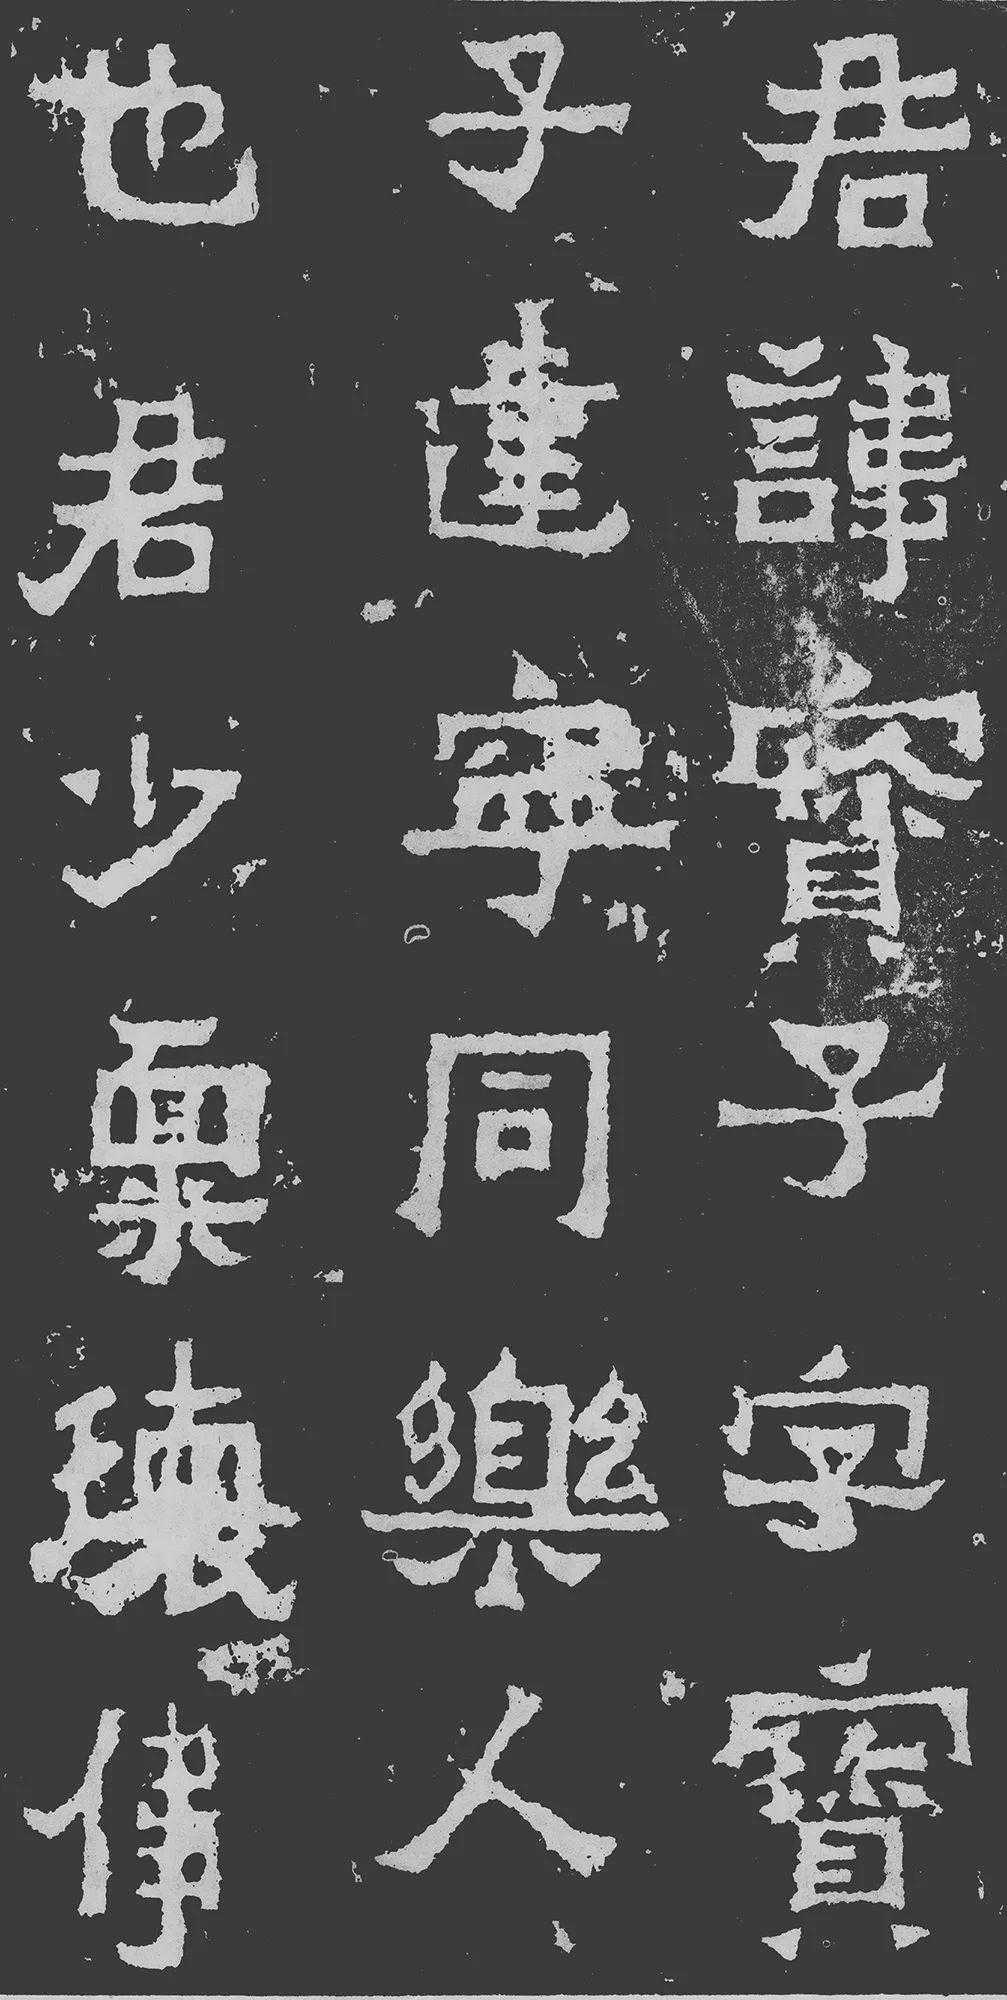 君諱寶子字寶
子建寧同樂人
也君少稟瓌偉